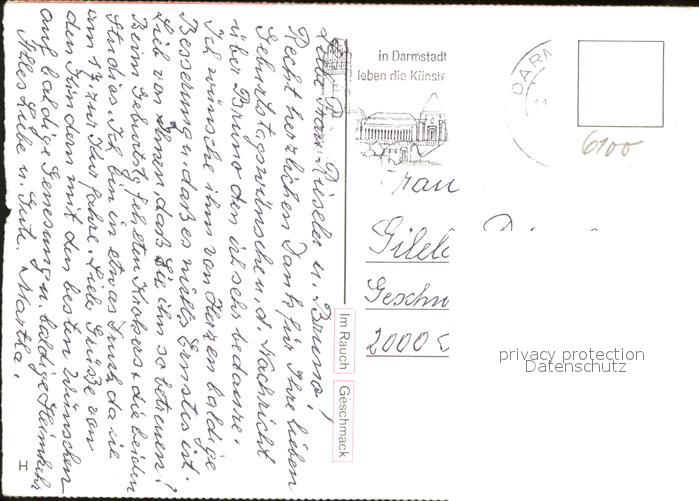 Liebe Frau Riseler u. Bruno!
Recht herzlichen Dank für Ihre lieben
Geburtstagswünsche u. d. Nachricht
über Bruno den ich sehr bedaure.
Ich wünsche ihm von Herzen baldige
Besserung u. daß es nichts Ernstes ist.
Lieb von Ihnen, daß Sie ihn so betreuen!
Beim Geburtstg fehlten die beiden
Studies. Ich bin in etwas Druck da sie
am 17. zur Kur fahre. Liebe Grüße von
den Kindern mit den besten Wünschen
auf baldige Genesung u. baldige Heimkehr
Alles Liebe u. Gute. Martha!
H
in Darmstadt
leben die Künste
DARM
6100
Frau
Gesch
2000
Im Rauch
Geschmack
privacy protection
Datenschutz